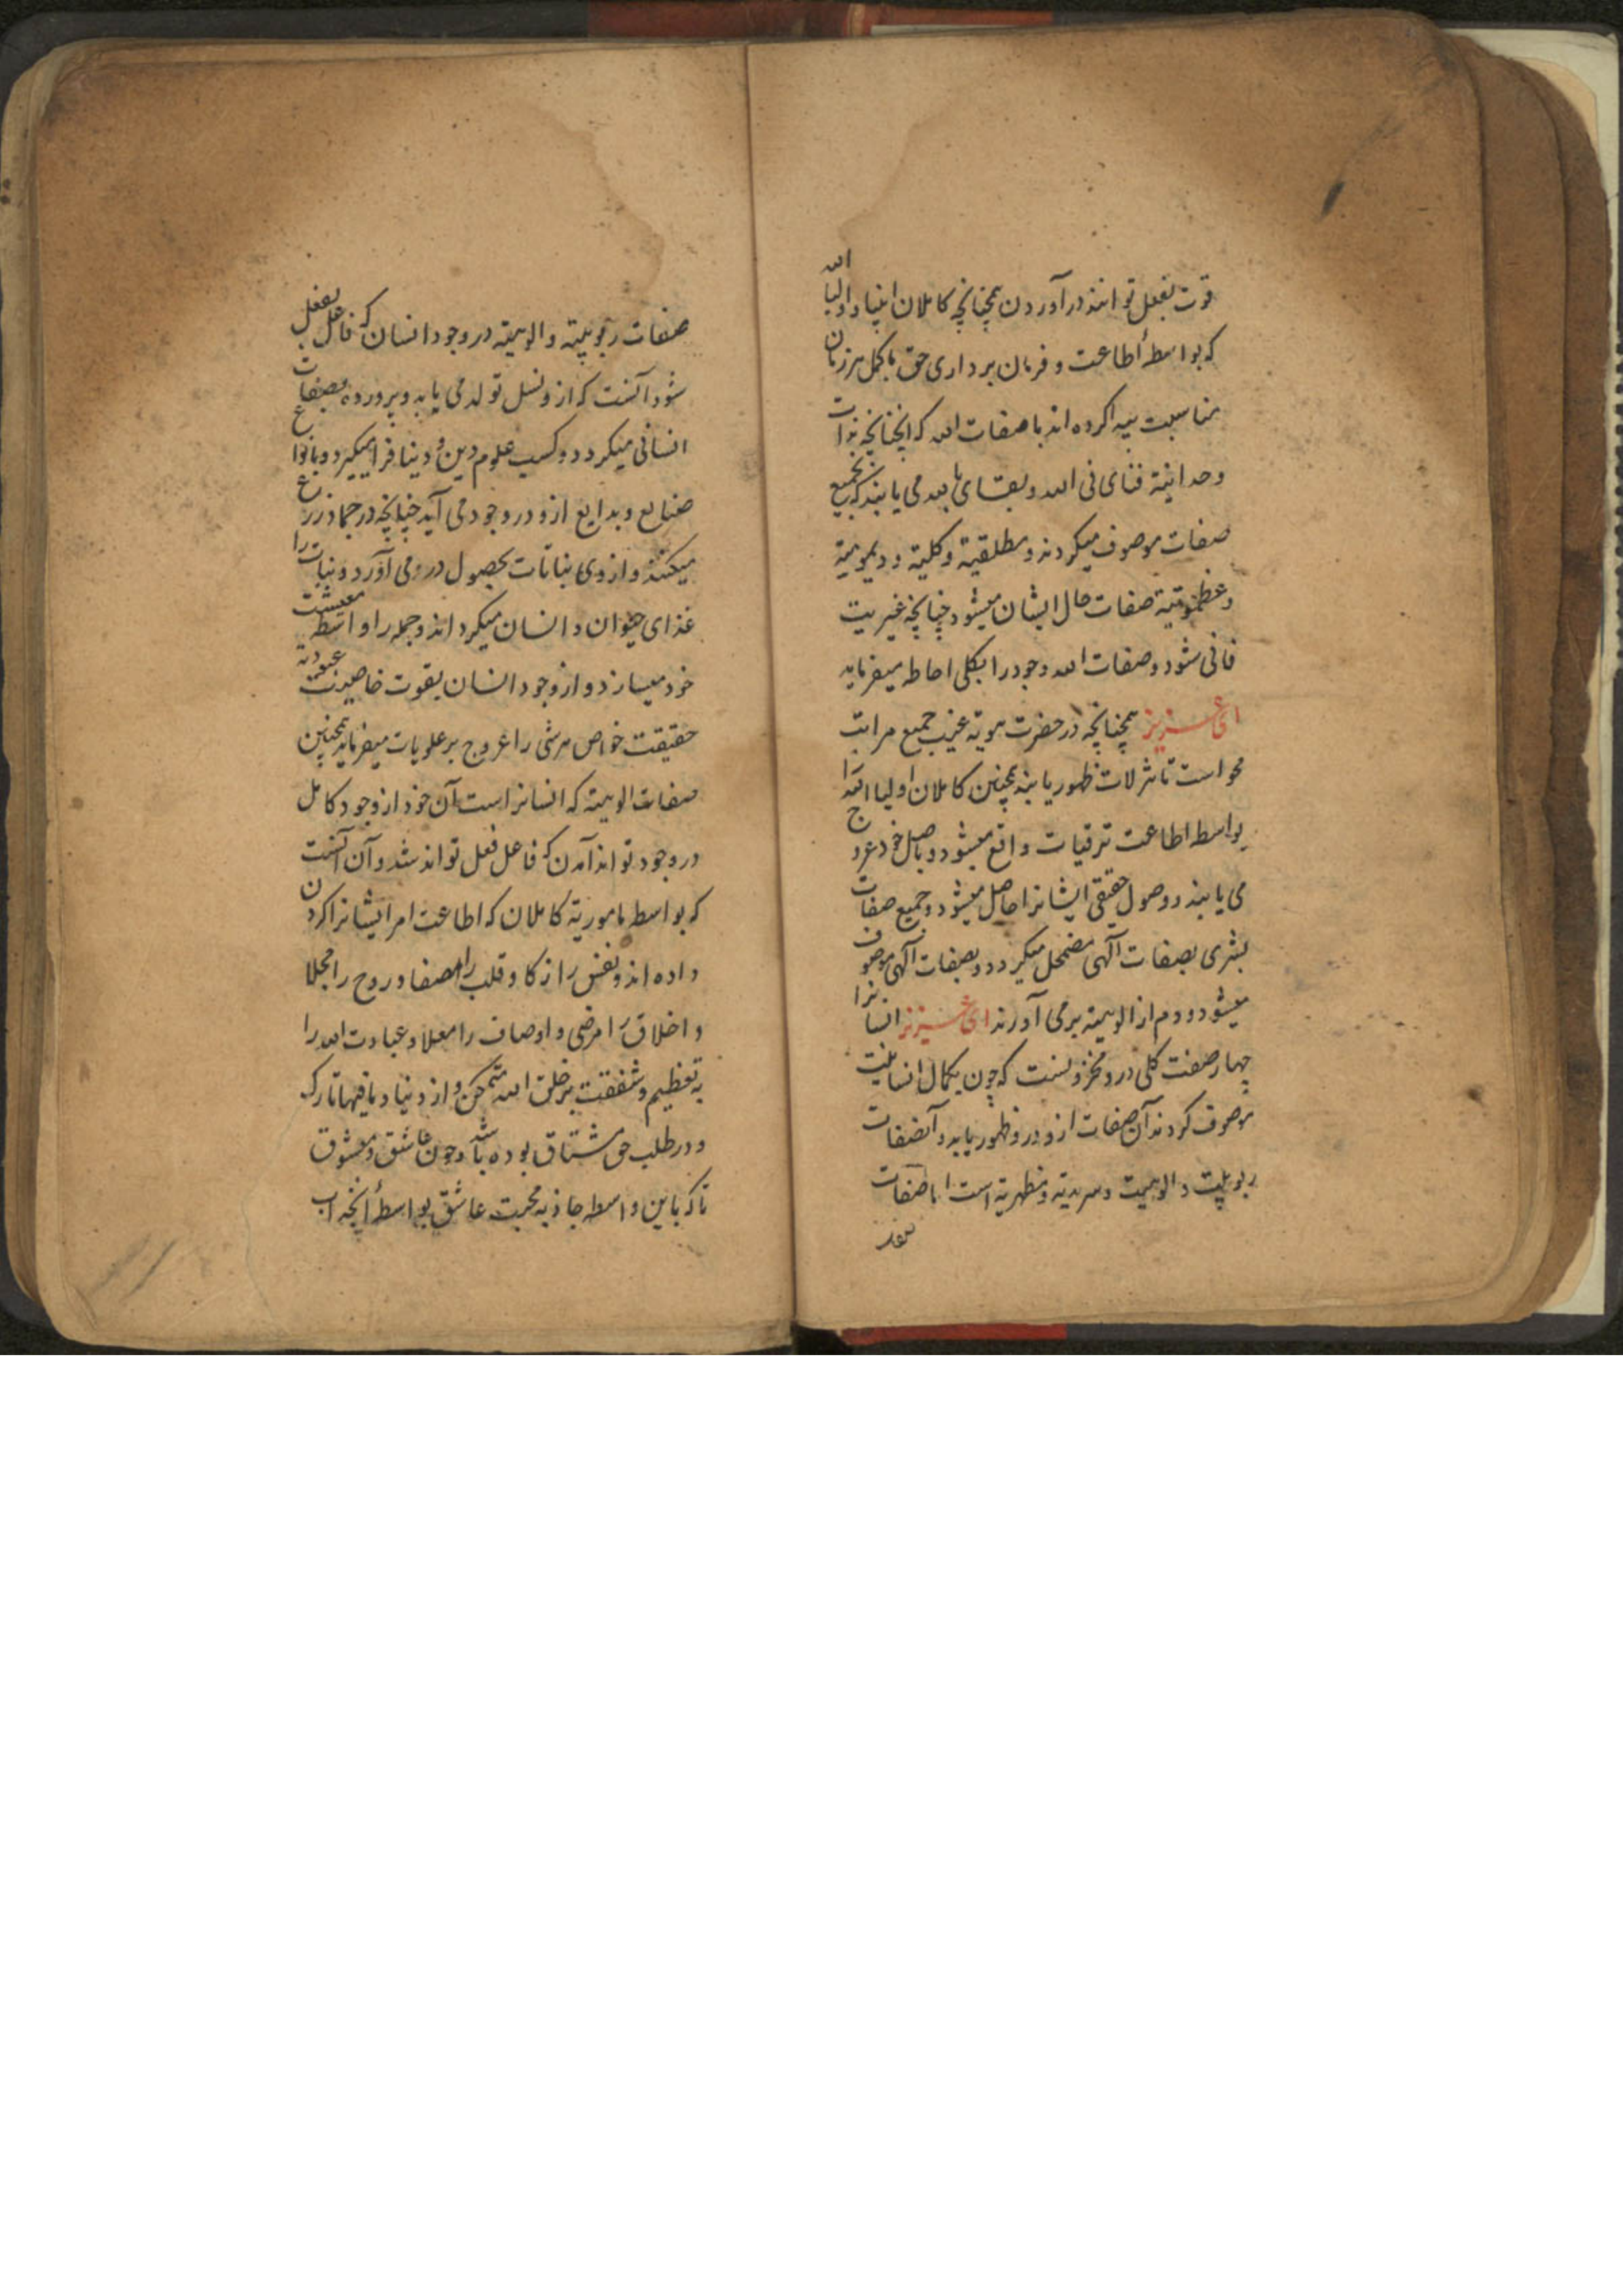 قوت بفعل توانند درآوردن همچنانچه کاملان انبیا و اولیا الله
که بواسطهٔ اطاعت و فرمان برداری حق با کمل هر زمان
مناسبت پیدا کرده اند با صفات الله که آنچنانچه بذات
وحدانیة فنای فی الله و بقای بالله می یابند که بجمیع
صفات موصوف میکردند و مطلقیة و کلیة و دیمومیة
و عظموتیة صفات حال ایشان میشود چنانچه غیریت
فانی شود و صفات الله وجود را بکلی احاطه میفرماید
ای عزیز همچنانچه در حضرت هویة غیب جمیع مراتب
محو است تا تنزلات ظهور یابند همچنین کاملان اولیا الله را
بواسطه اطاعت ترقیات واقع میشود و باصل خود عروج
می یابند و وصول حقیقی ایشانرا حاصل میشود و جمیع صفات
بشری بصفات آلهی مضمحل میکردد و بصفات آلهی موصوف
میشود و دم از الوهیة برمی آورند ای عزیز انسانرا
چهار صفت کلی درو مخزونست که چون بکمال انسانیت
موصوف کردند آن صفات ازو در وظهور یابد و آنصفات
ربوبیت و الوهیت و سرمدیة و مظهریة است اما صفات
صفات ربوبیة و الوهیة در وجود انسان که فاعل بفعل
شود آنست که ازو نسل تولد می یابد و پرورده بصفات
انسانی میکردد و کسب علوم دین و دنیا فرا میکیرد و بانواع
صنایع و بدایع ازو در وجود می آید چنانچه در جماد زرع
میکند و از وی نباتات بحصول درمی آورد و نبات را
غذای حیوان و انسان میکرداند و جمله را واسطه معیشت
خود میسازد و از وجود انسان بقوت خاصیت عبودیة
حقیقت خواص هر شی را عروج بر علویات میفرماید همچنین
صفات الوهیة که انسانراست آن خود از وجود کامل
در وجود تواند آمدن که فاعل فعل تواند شد و آن آنست
که بواسطه ماموریة کاملان که اطاعت امر ایشانرا کردن
داده اند و نفس را زکا و قلب را مصفا و روح را مجلا
و اخلاق را مرضی و اوصاف را معلا و عبادت الله را
به تعظیم و شفقت بر خلق الله متمکن و از دنیا و مافیها تارک
و در طلب حق مشتاق بوده باشد و چون عاشق و معشوق
تا که باین واسطه جاذبه محبت عاشق بواسطهٔ آنچه آب